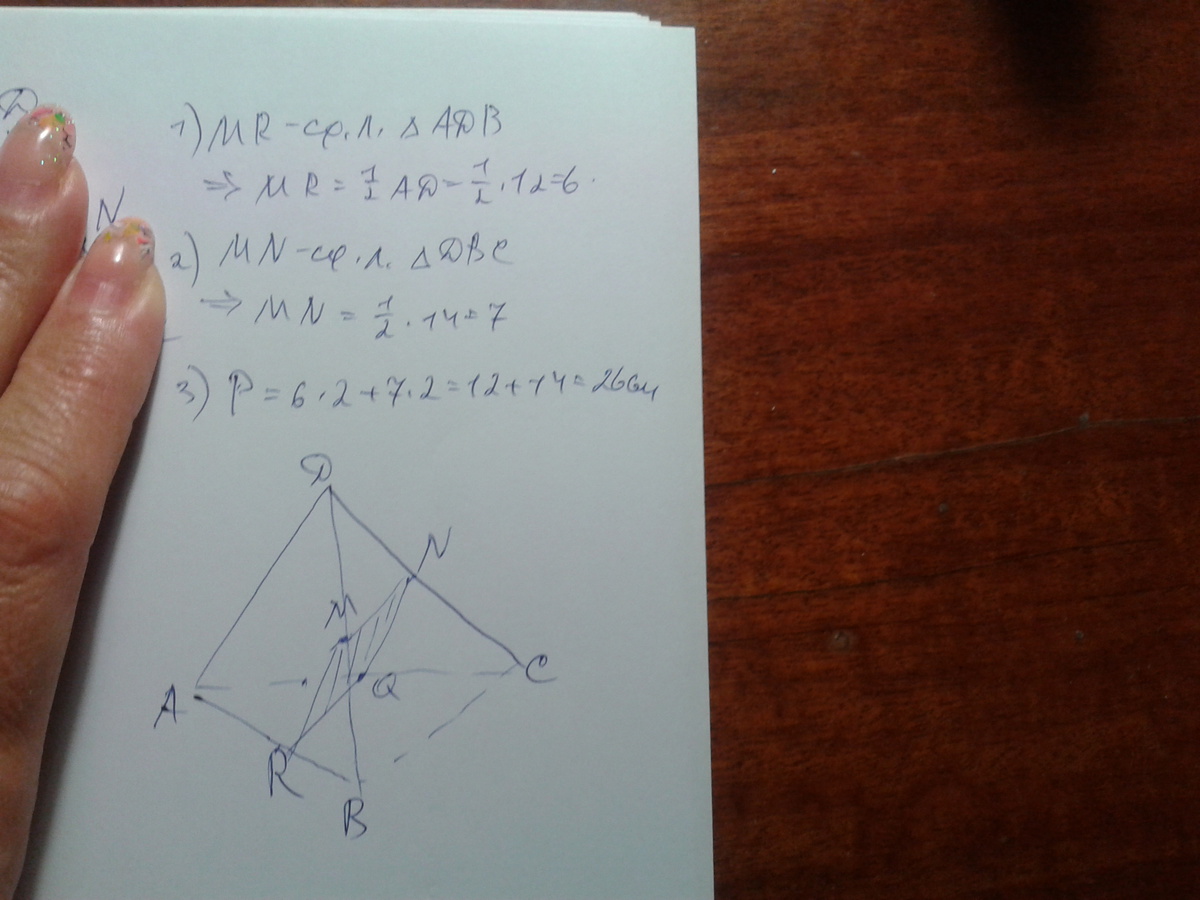 D
N
1) MR - ср. л. △ ADB
⇒ MR = 1/2 AD - 1/2 · 12 = 6.
2) MN - ср. л. △ DBC
⇒ MN = 1/2 · 14 = 7
3) P = 6 · 2 + 7 · 2 = 12 + 14 = 26 см
D
N
M
A
Q
C
R
B